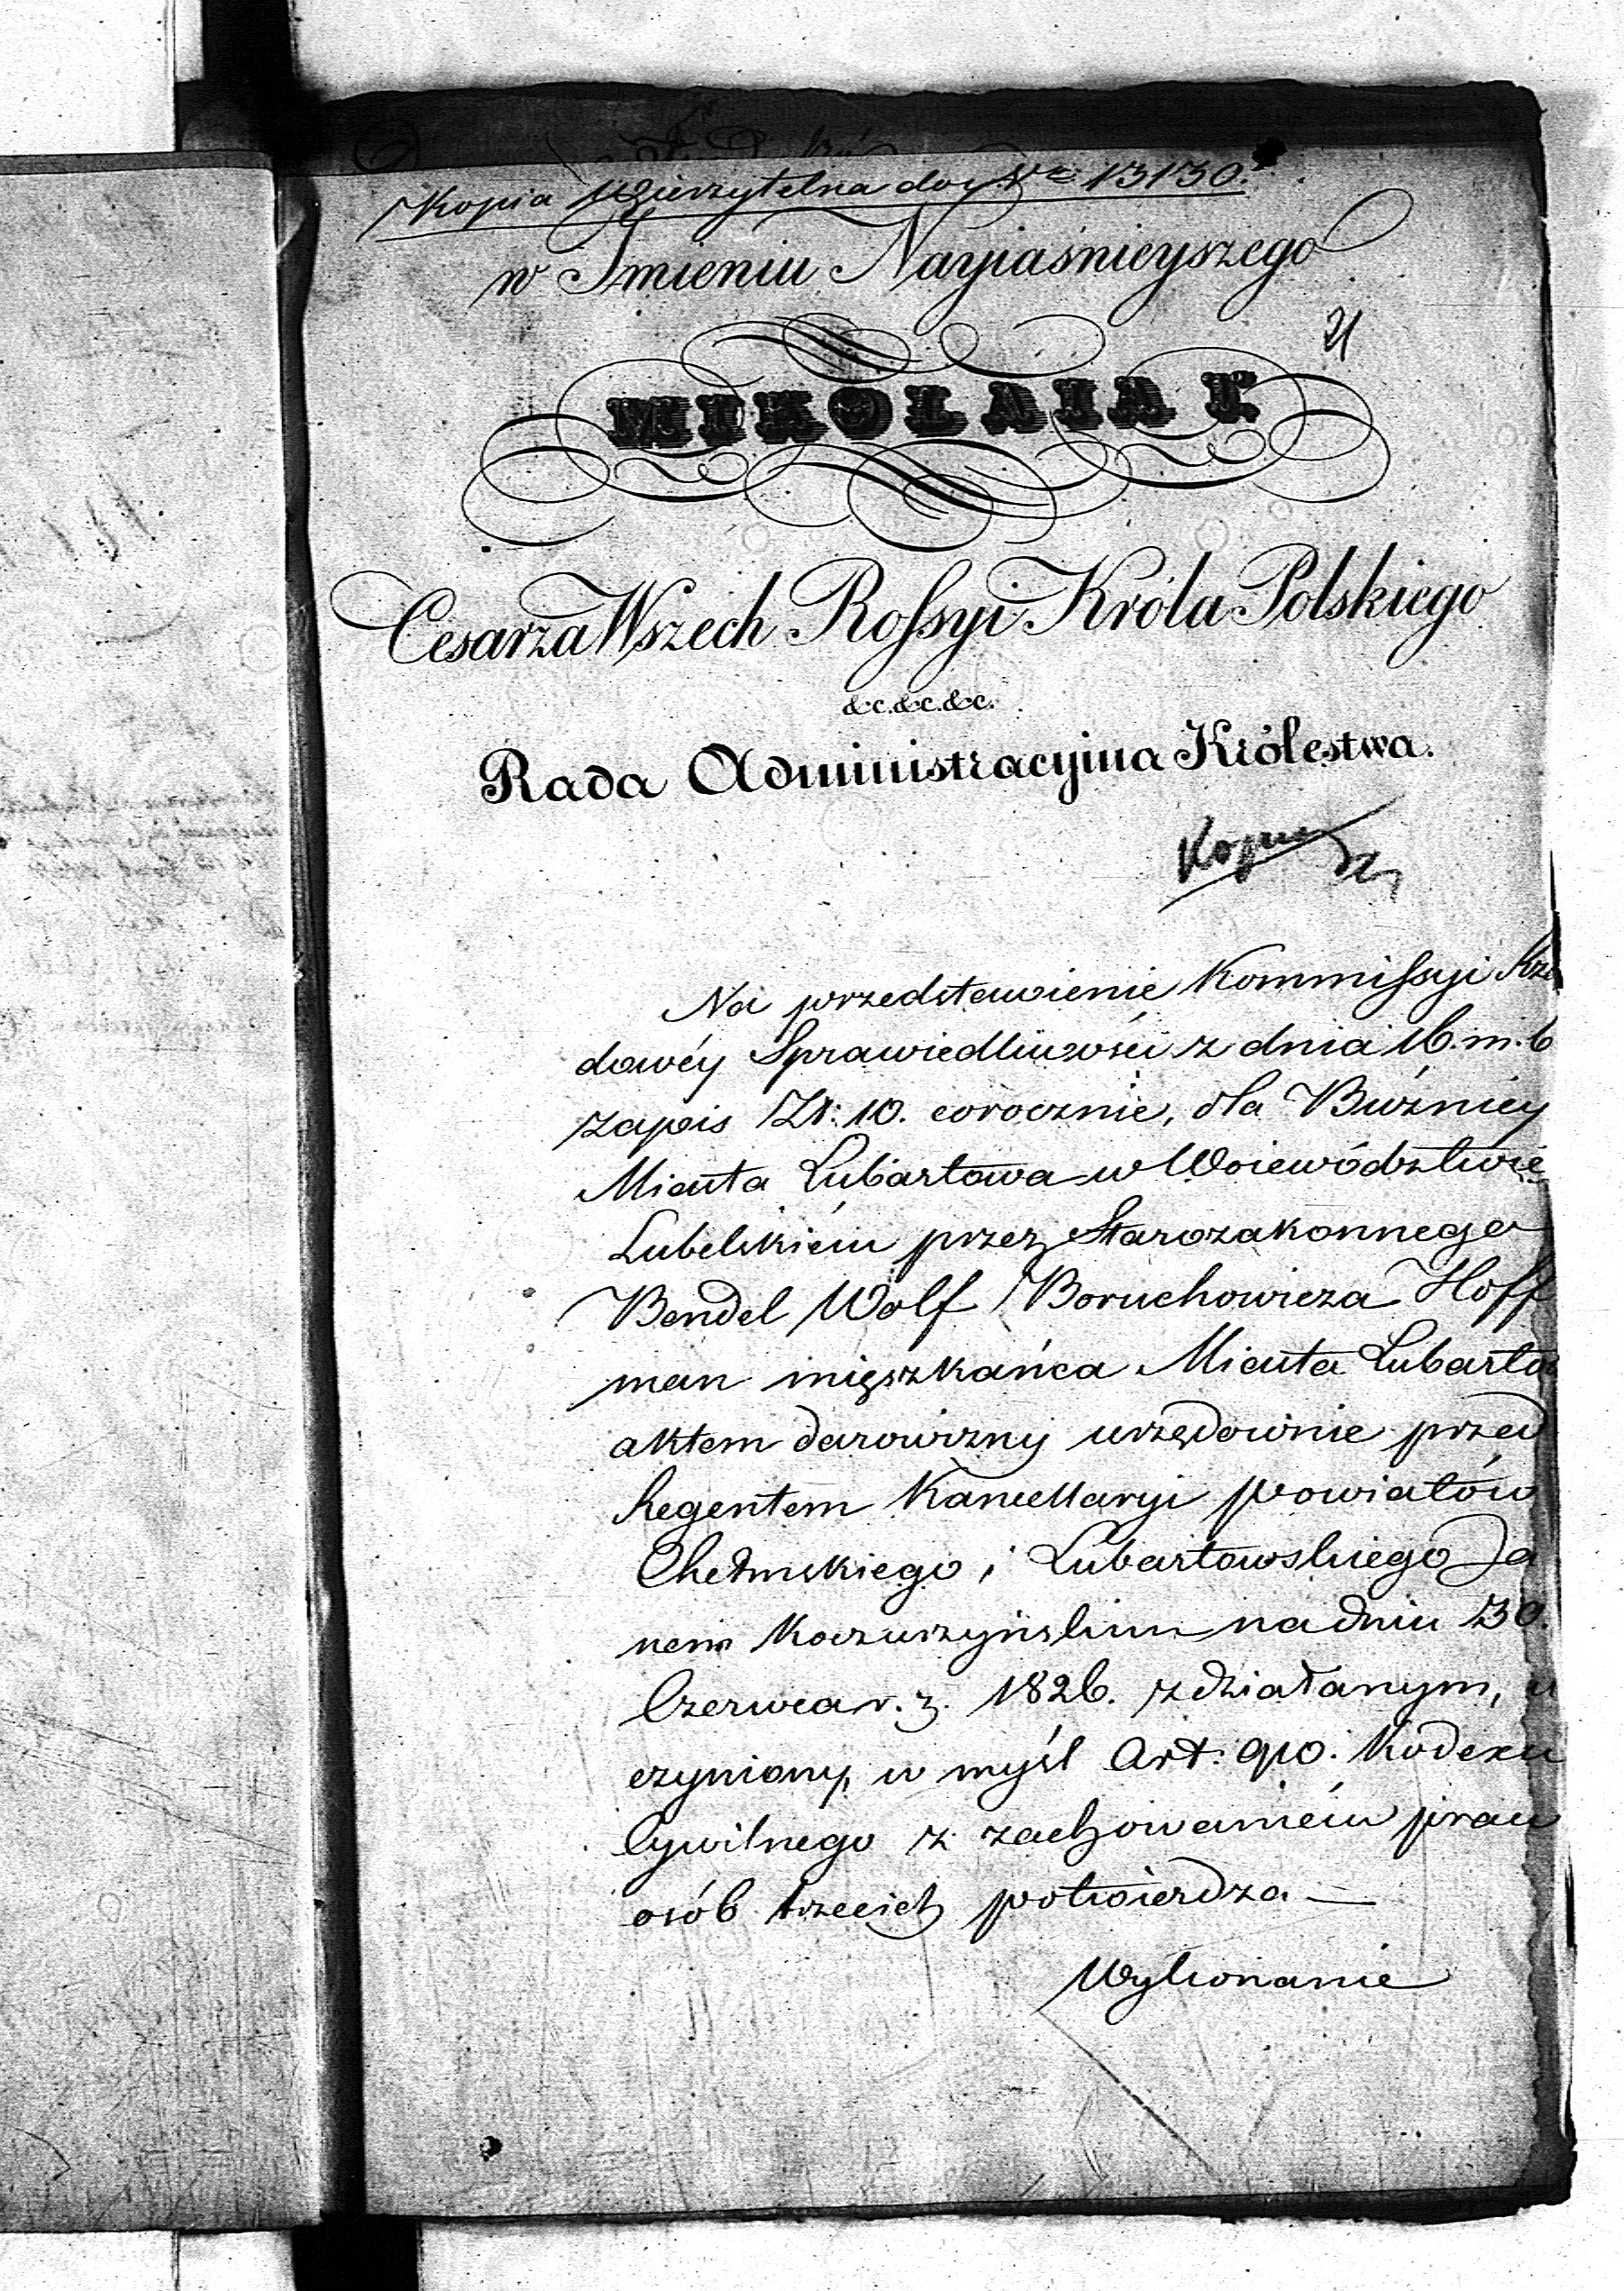 Kopia wierzytelna do Nr 13130.
w Imieniu Nayiaśnieyszego
21
MIKOŁAIA I.
Cesarza Wszech Rossyi Króla Polskiego
&c.&c.&c.
Rada Administracyina Królestwa.
Kopia
Na przedstawienie Kommissyi Rzą
dowéy Sprawiedliwości z dnia 16. m. b
zapis Zł: 10. corocznie, dla Bużnicy
Miasta Lubartowa w Woiewództwie
Lubelskiém przez Starozakonnego
Bendel Wolf Boruchowicza Hoff
man mięszkańca Miasta Lubarto
aktem darowizny urzędownie przed
Regentem Kancellaryi powiatów
Chełmskiego i Lubartowskiego Ja
nem Koczurzyńskim na dniu 30.
Czerwca r. z. 1826. zdziałanym, u
czyniony, w myśl Art: 910. Kodexu
Cywilnego z zachowaniem praw
osób trzecich potwierdza —
Wykonanie